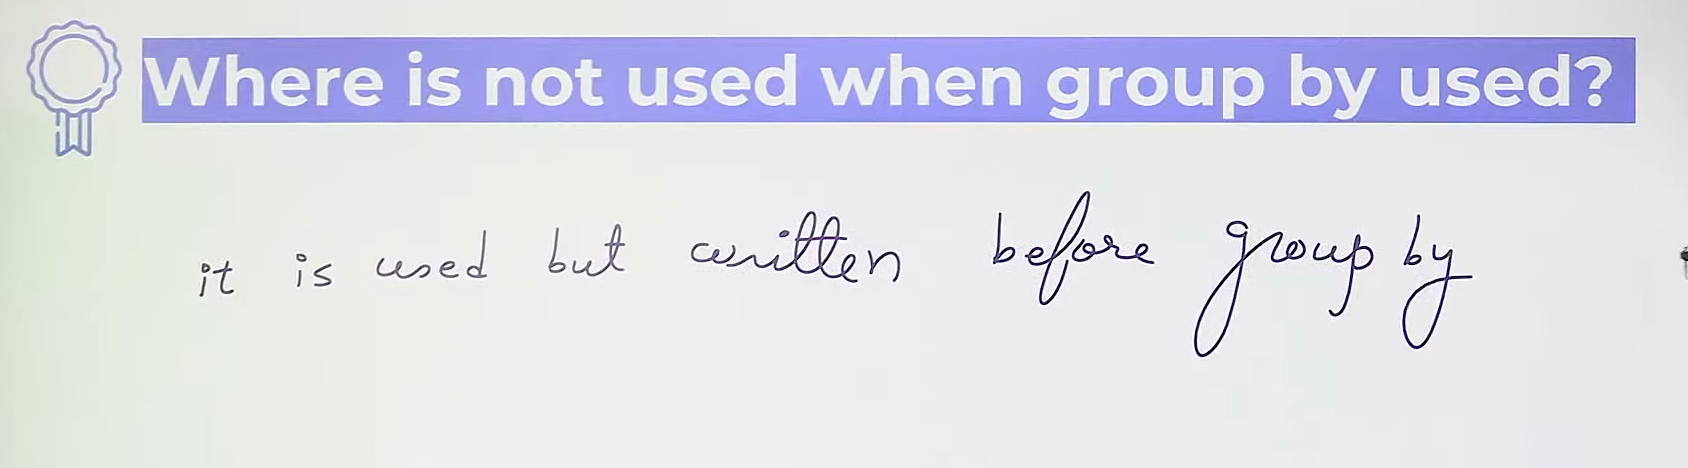 Where is not used when group by used?
it is used but written before group by